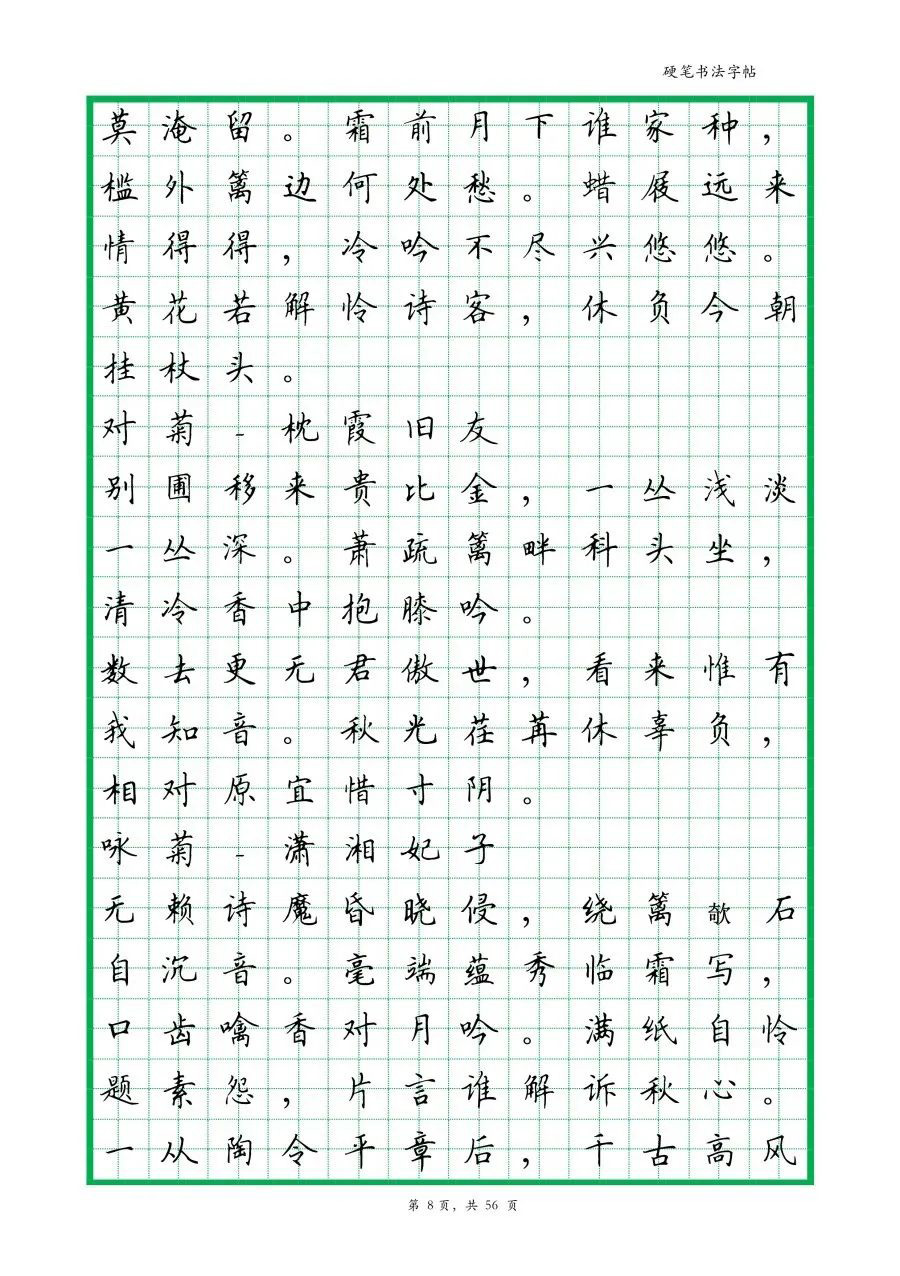 硬笔书法字帖
莫淹留。霜前月下谁家种，
槛外篱边何处愁。蜡展远来
情得得，冷吟不尽兴悠悠。
黄花若解怜诗客，休负今朝
挂杖头。
对菊-枕霞旧友
别圃移来贵比金，一丛浅淡
一丛深。萧疏篱畔科头坐，
清冷香中抱膝吟。
数去更无君傲世，看来惟有
我知音。秋光荏苒休辜负，
相对原宜惜寸阴。
咏菊-潇湘妃子
无赖诗魔昏晓侵，绕篱欹石
自沉音。毫端蕴秀临霜写，
口齿噙香对月吟。满纸自怜
题素怨，片言谁解诉秋心。
一从陶令平章后，千古高风
第 8 页，共 56 页